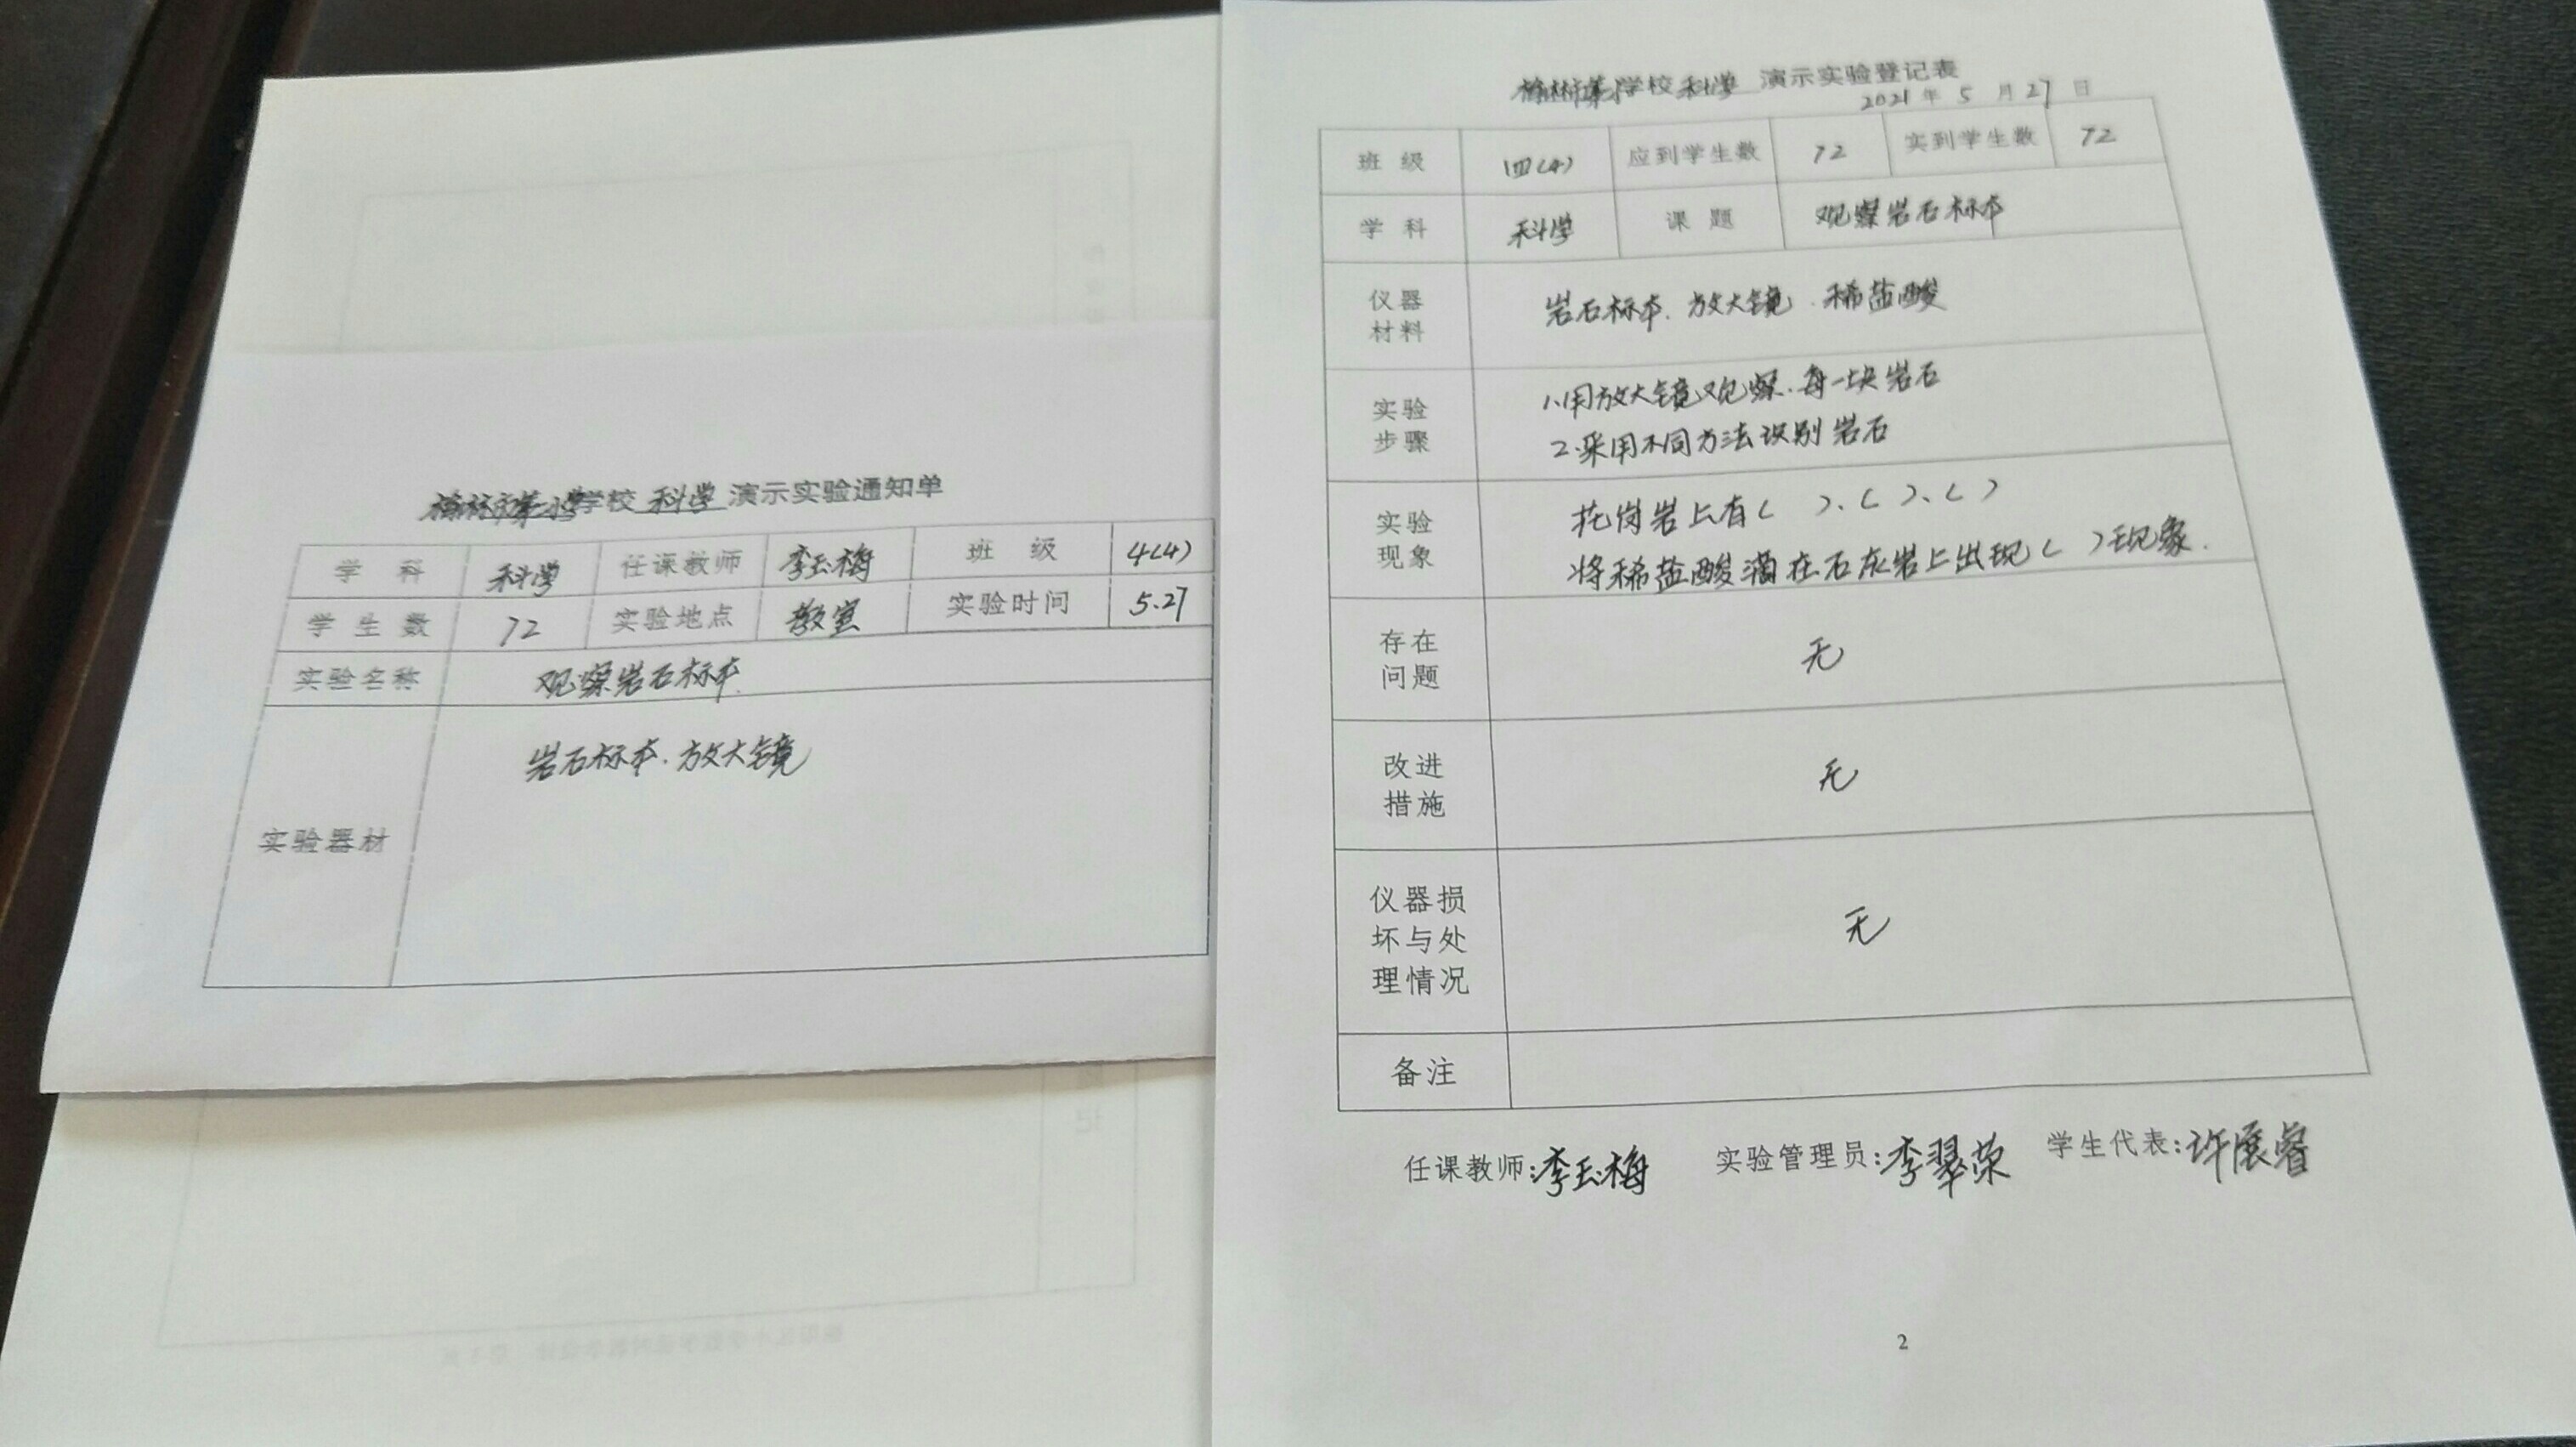 学校 科学 演示实验通知单
学 科 科学 任课教师 李玉梅 班 级 4(4)
学 生 数 72 实验地点 教室 实验时间 5.27
实验名称 观察岩石标本
实验器材 岩石标本.放大镜
学校 科学 演示实验登记表
2021 年 5 月 27 日
班 级 四(4) 应到学生数 72 实到学生数 72
学 科 科学 课 题 观察岩石标本
仪器
材料
岩石标本.放大镜.稀盐酸
实验
步骤
1.用放大镜观察.每一块岩石
2.采用不同方法识别岩石
实验
现象
花岗岩上有( )、( )、( )
将稀盐酸滴在石灰岩上出现( )现象.
存在
问题
无
改进
措施
无
仪器损
坏与处
理情况
无
备注
任课教师:李玉梅 实验管理员:李翠荣 学生代表:许展睿
2